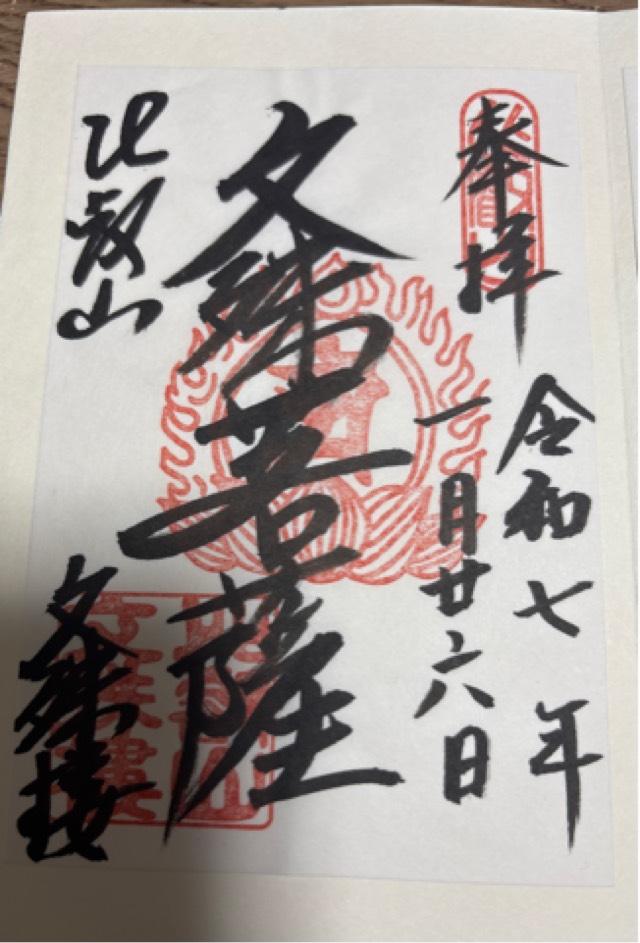 奉拝
令和七年
一月廿六日
文殊菩薩
比叡山
文殊楼